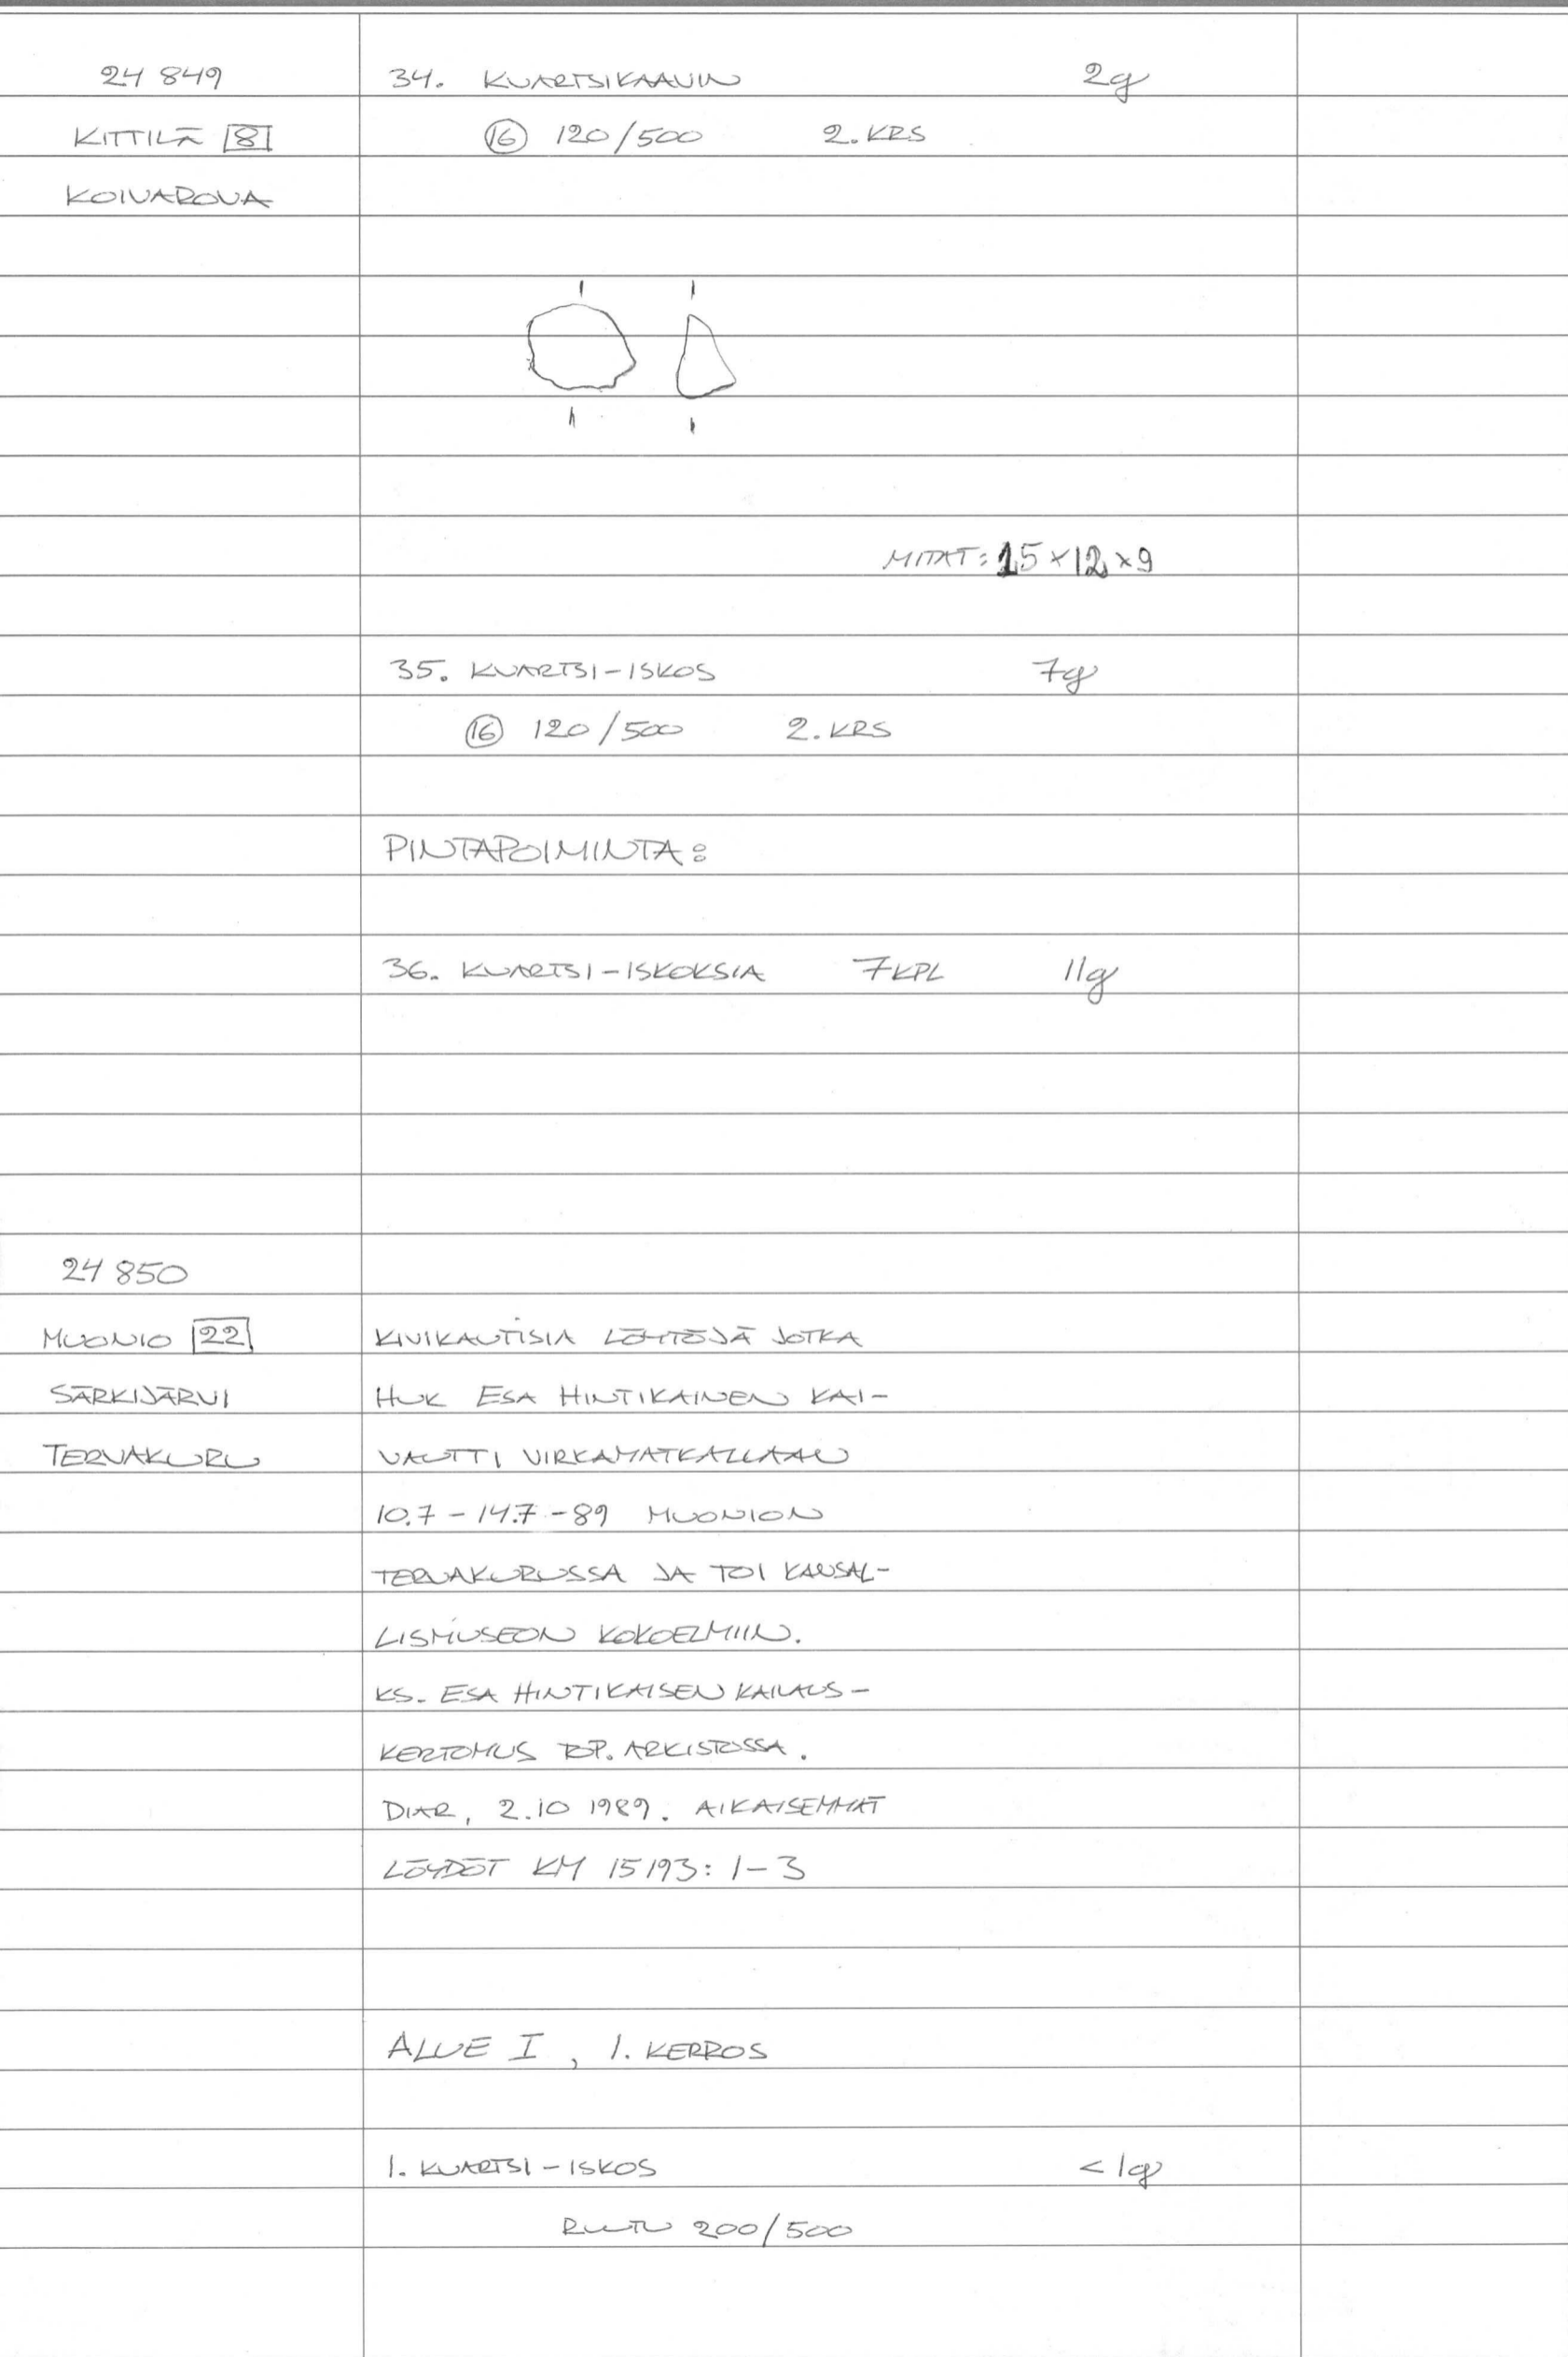 24 849 34. KVARTSIKAAVIN 2g
KITTILÄ 8 16 120/500 2. KRS
KOIVAROVA
MITAT: 15 × 12 × 9
35. KVARTSI-ISKOS 7g
16 120/500 2. KRS
PINTAPOIMINTA:
36. KVARTSI-ISKOKSIA 7 KPL 11g
24 850
MUONIO 22 KIVIKAUTISIA LÖYTÖJÄ JOTKA
SÄRKIJÄRVI HUK ESA HINTIKAINEN KAI-
TERVAKURU VAUTTI VIRKAMATKALLAAN
10.7 - 14.7 - 89 MUONION
TERVAKURUSSA JA TOI KANSAL-
LISMUSEON KOKOELMIIN.
KS. ESA HINTIKAISEN KAIVAUS-
KERTOMUS TOP. ARKISTOSSA.
DIAR, 2.10 1989. AIKAISEMMAT
LÖYDÖT KM 15193: 1-3
ALUE I, 1. KERROS
1. KVARTSI-ISKOS < 1g
RUUTU 200/500